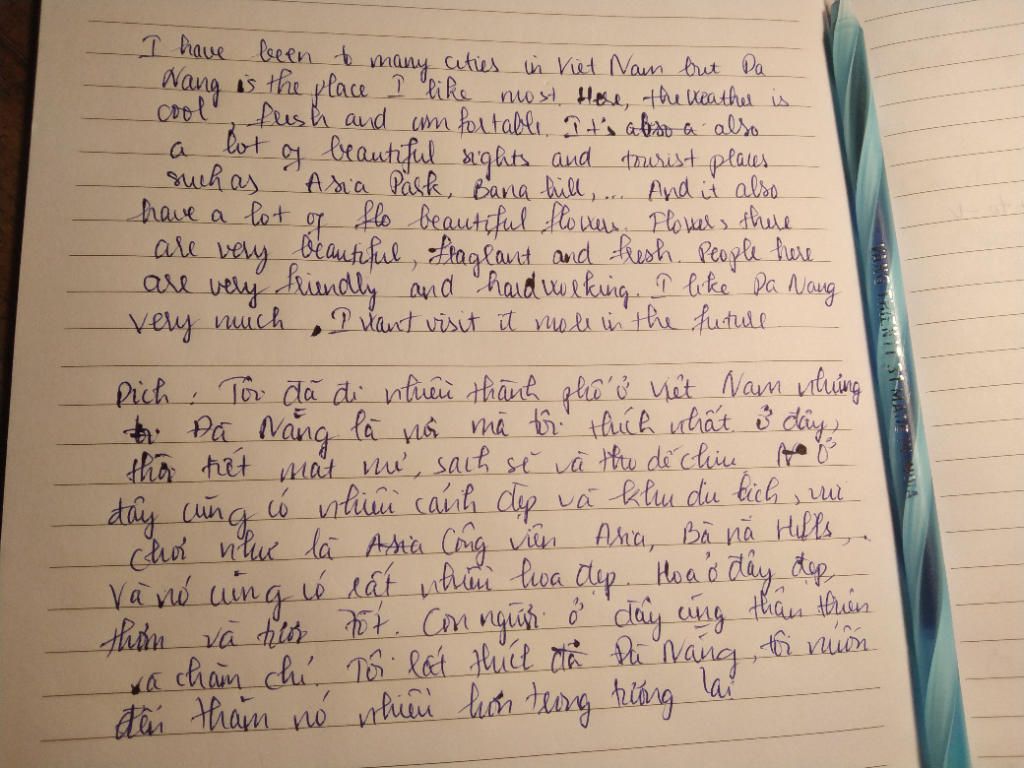 I have been to many cities in Viet Nam but Da
Nang is the place I like most. Here, the weather is
cool, fresh and comfortable. It's also a also
a lot of beautiful sights and tourist places
such as Asia Park, Bana hill,... And it also
have a lot of flo beautiful flowers. Flowers there
are very beautiful, fragrant and fresh. People here
are very friendly and hard working. I like Da Nang
very much, I want visit it more in the future
Dịch: Tôi đã đi nhiều thành phố ở Việt Nam nhưng
Đà Nẵng là nơi mà tôi thích nhất. Ở đây,
thời tiết mát mẻ, sạch sẽ và dễ chịu. Ở
đây cũng có nhiều cảnh đẹp và khu du lịch, vui
chơi như là Asia Công viên Asia, Bà nà Hills,..
Và nó cũng có rất nhiều hoa đẹp. Hoa ở đây đẹp,
thơm và tươi tốt. Con người ở đây cũng thân thiện
và chăm chỉ. Tôi rất thích đà Đà Nẵng, tôi muốn
đến thăm nó nhiều hơn trong tương lai